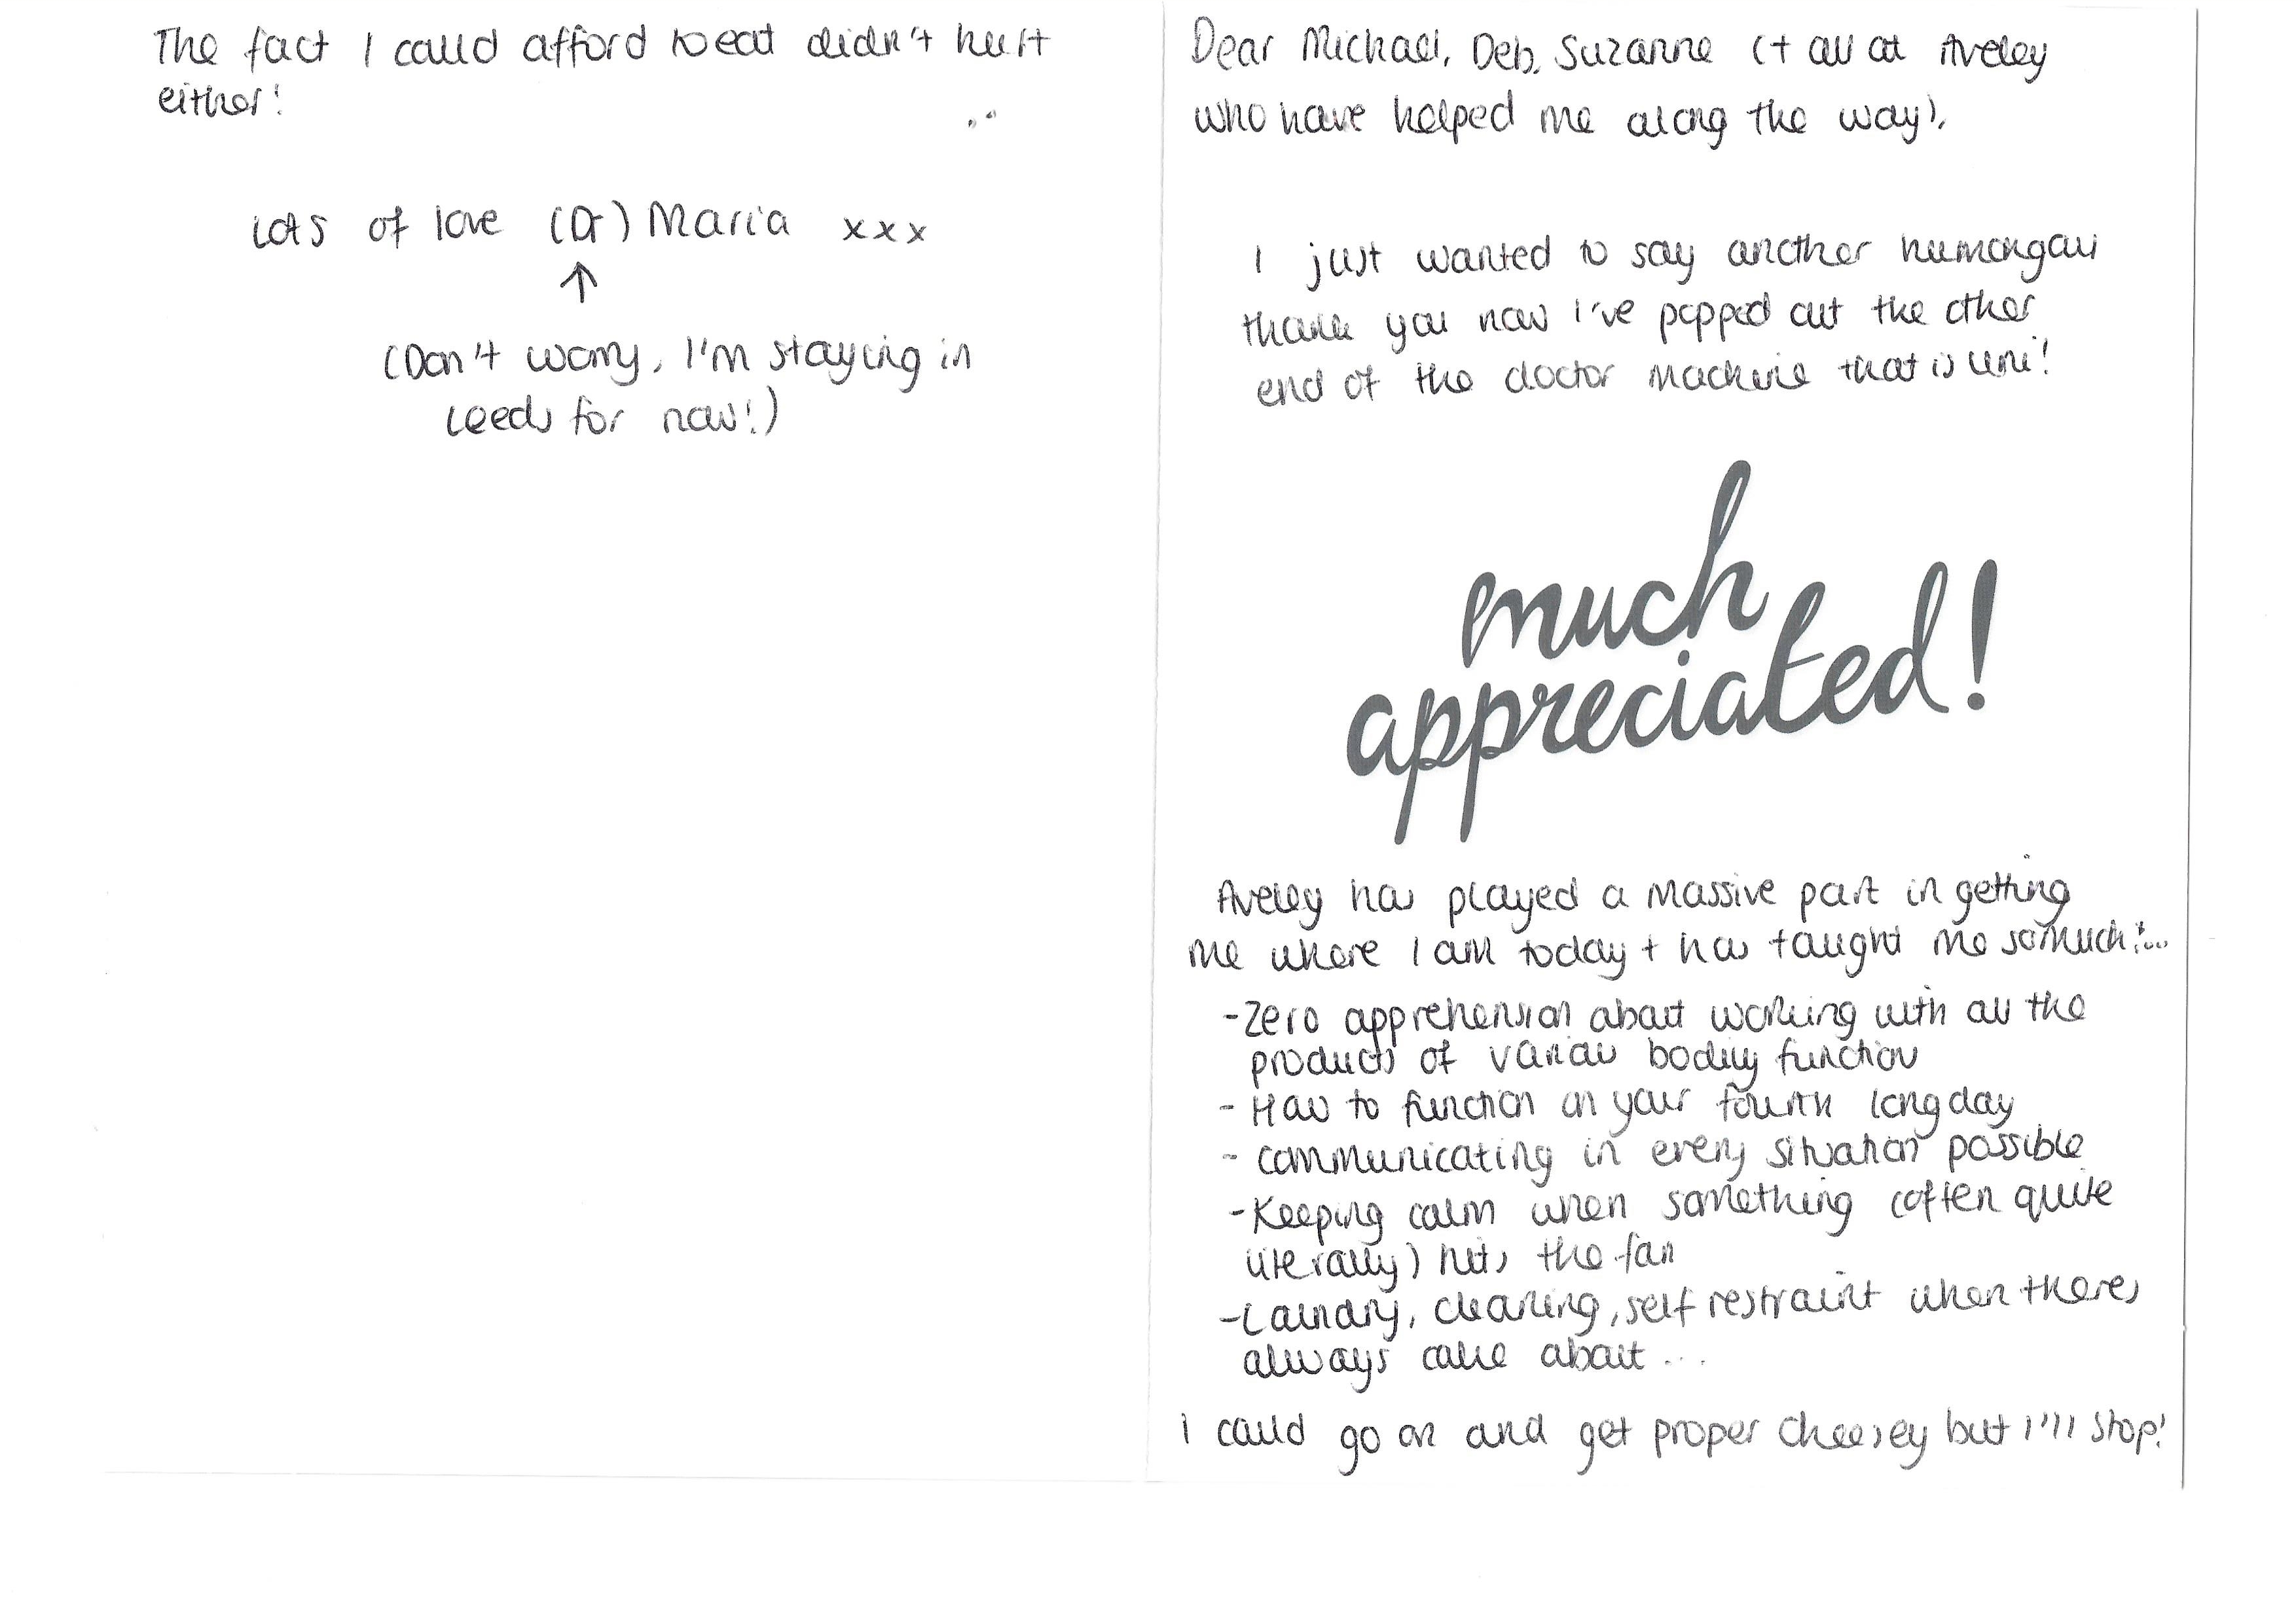 The fact I could afford to eat didn't hurt
either!
Lots of love (Dr) Maria xxx
↑
(Don't worry, I'm staying in
Leeds for now!)
Dear Michael, Deb, Suzanne (+ all at Aveley
who have helped me along the way),
I just wanted to say another humongous
thank you now I've popped out the other
end of the doctor machine that is uni!
much
appreciated!
Aveley has played a massive part in getting
me where I am today + has taught me so much!...
- Zero apprehension about working with all the
products of various bodily functions
- How to function on your fourth long day
- communicating in every situation possible
- Keeping calm when something (often quite
literally) hits the fan
- Laundry, cleaning, self restraint when theres
always cake about ...
I could go on and get proper cheesey but I'll stop!